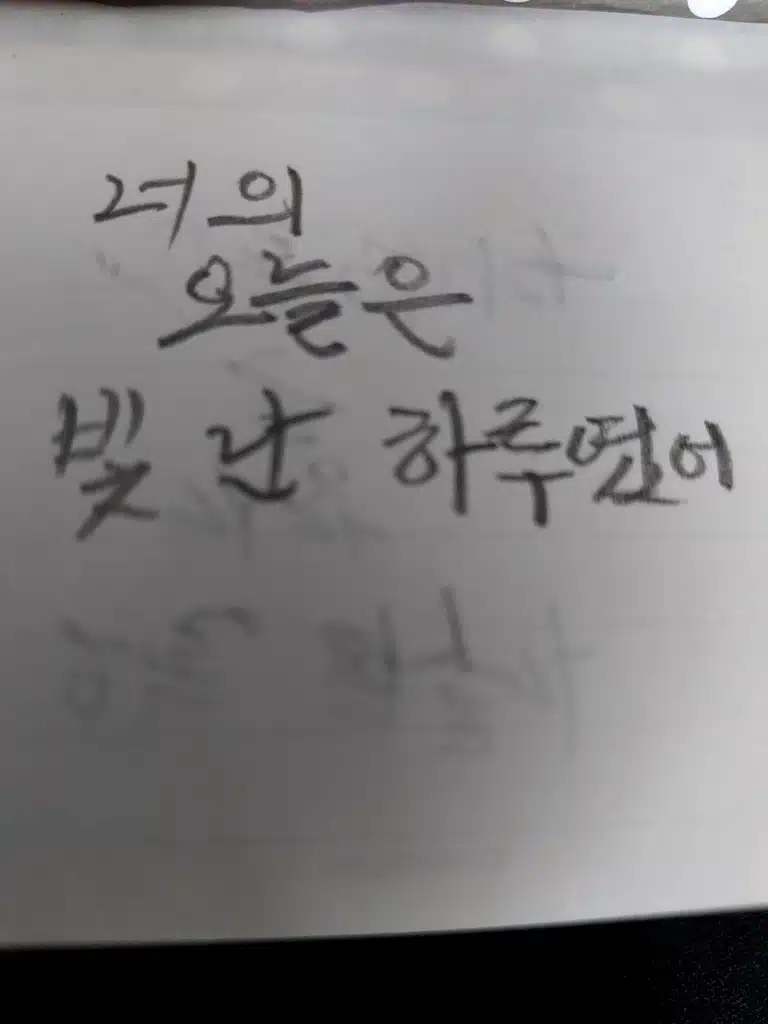 너의
오늘은
빛난 하루였어